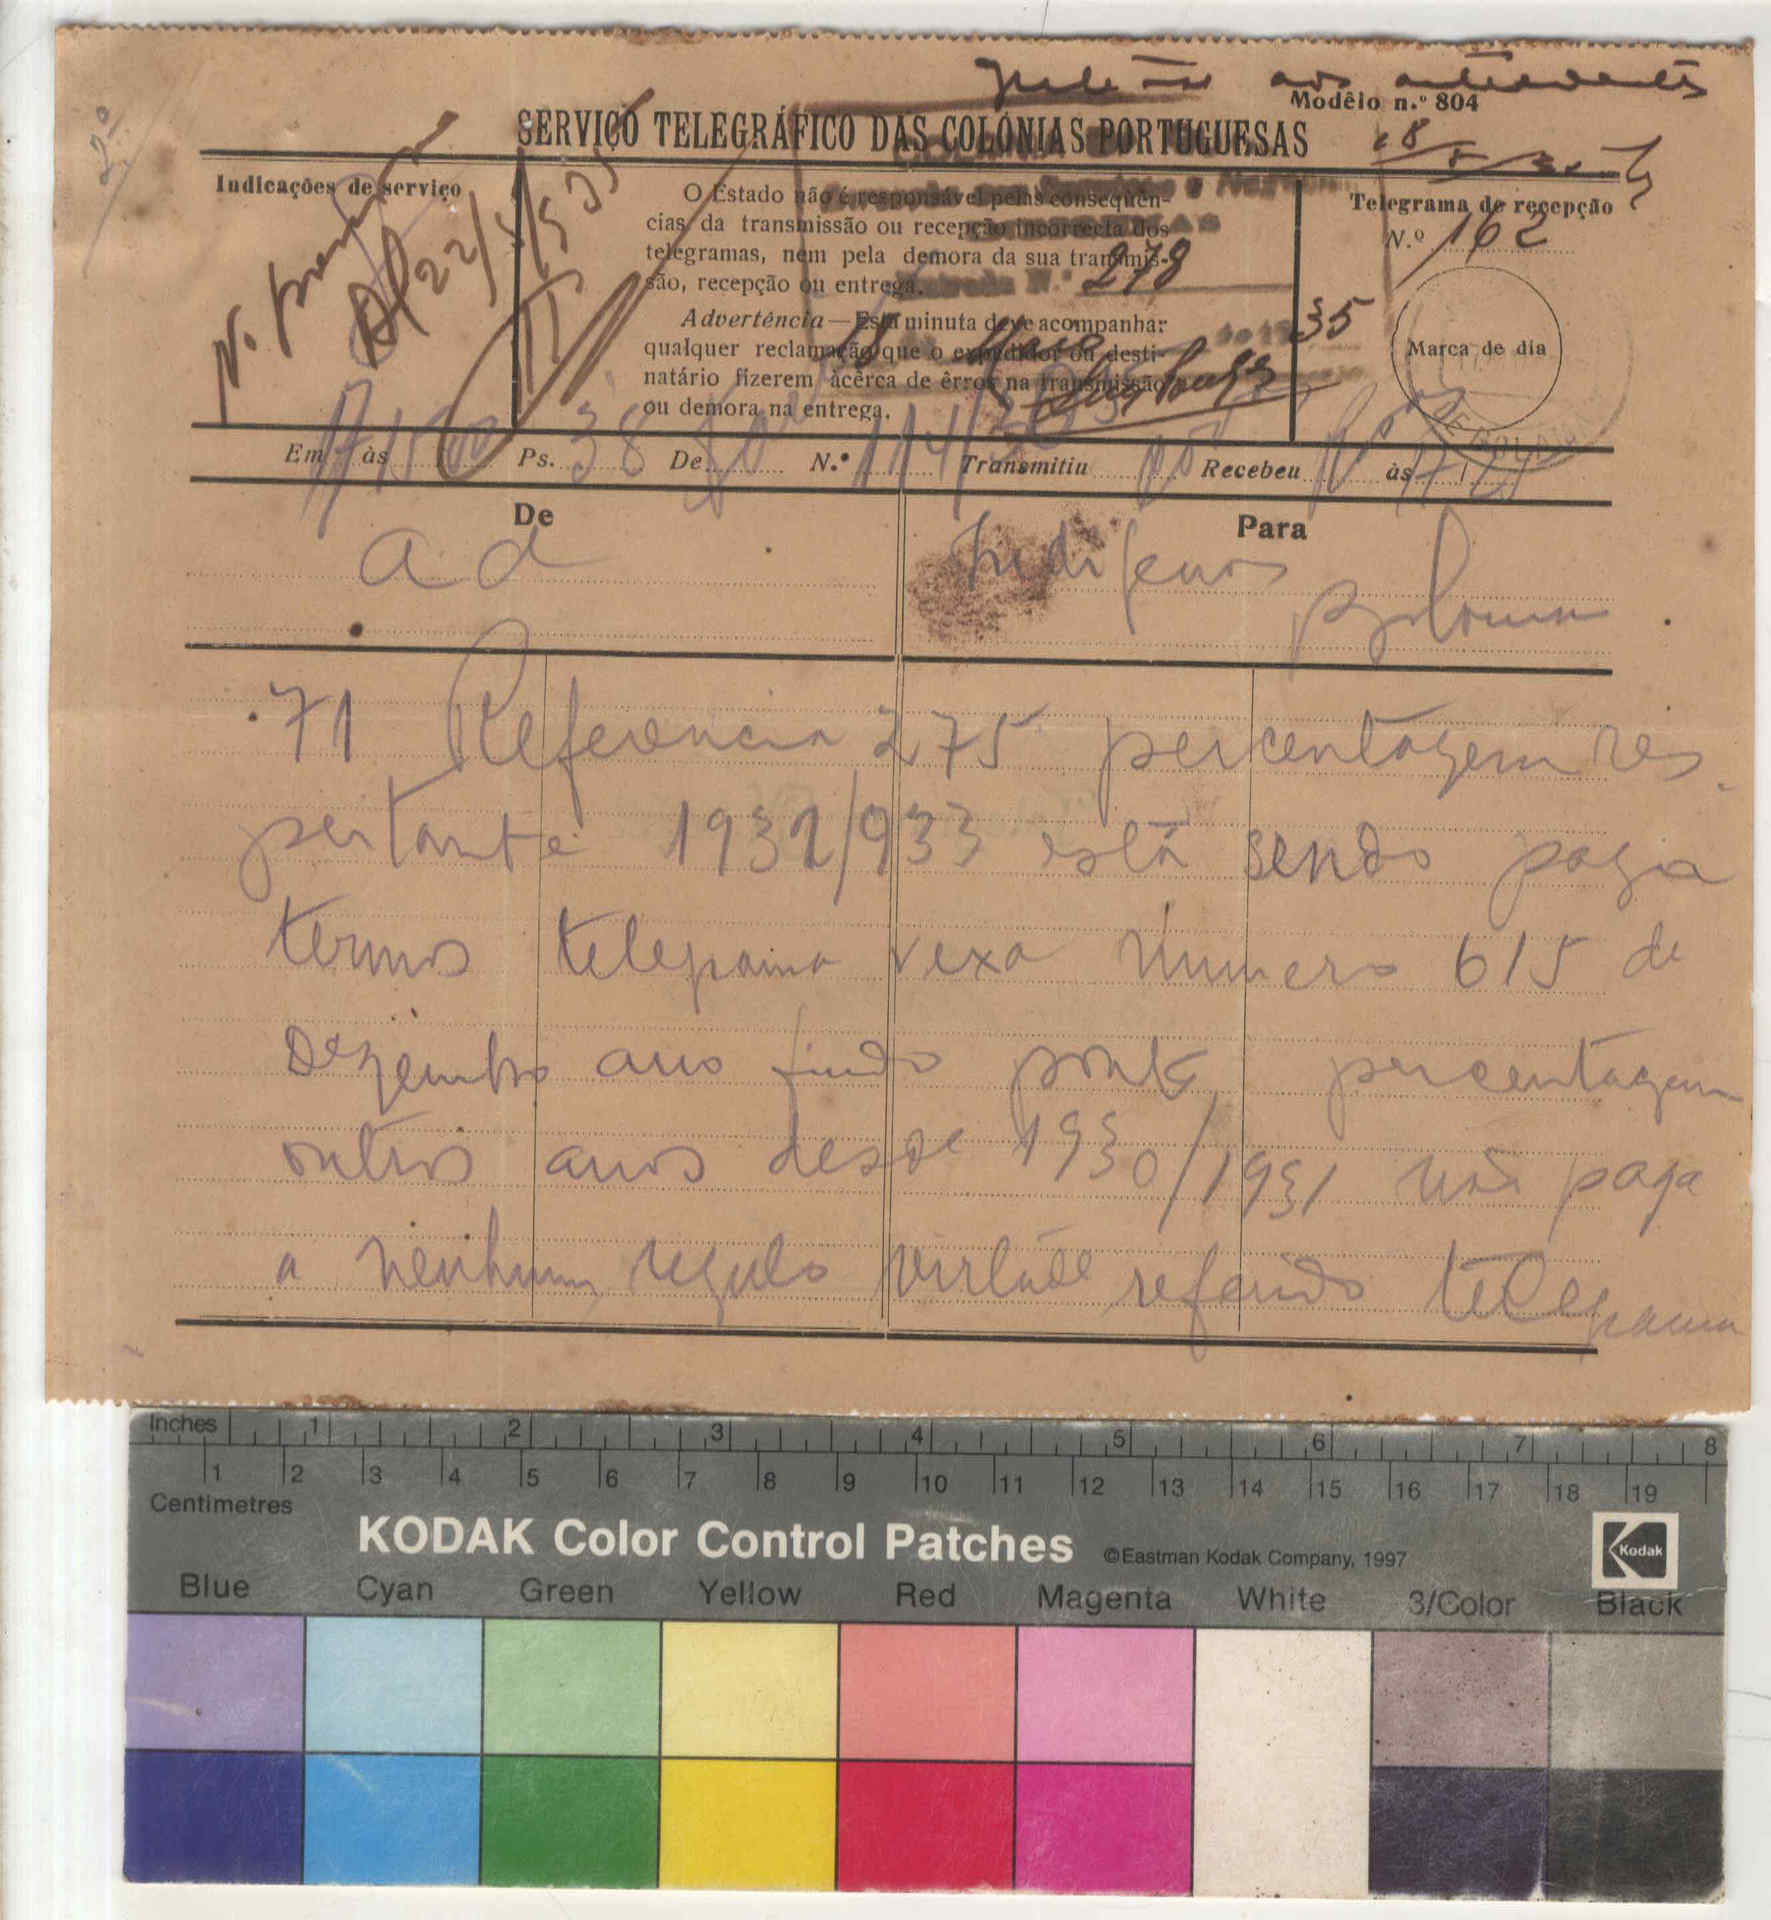 Junte-se aos antecedentes
Modêlo n.º 804
SERVIÇO TELEGRÁFICO DAS COLÓNIAS PORTUGUESAS
18/5/35
2º
Indicações de serviço
22/5/935
O Estado não é responsável pelas conseqüên-
cias da transmissão ou recepção incorrecta dos
telegramas, nem pela demora da sua transmis-
são, recepção ou entrega.
Advertência—Esta minuta deve acompanhar
qualquer reclamação que o expedidor ou desti-
natário fizerem àcêrca de êrros na transmissão
ou demora na entrega.
Entrada N.º 278
18 Maio de 1935
Telegrama de recepção
N.º 162
Marca de dia
Em 17 às 1500 Ps. 38 De N.º 114 Transmitiu Recebeu às 17
De
ad
Para
Indigenas
Bolama
71 Referencia 275 percentagem res
peitante 1932/933 está sendo paga
termos telegrama vexa numero 615 de
Dezembro ano findo ponto percentagem
outros anos desde 1930/1931 não paga
a nenhum regulo virtude referido telegrama
Inches 1 2 3 4 5 6 7 8
1 2 3 4 5 6 7 8 9 10 11 12 13 14 15 16 17 18 19
Centimetres
KODAK Color Control Patches ©Eastman Kodak Company, 1997
Kodak
Blue Cyan Green Yellow Red Magenta White 3/Color Black